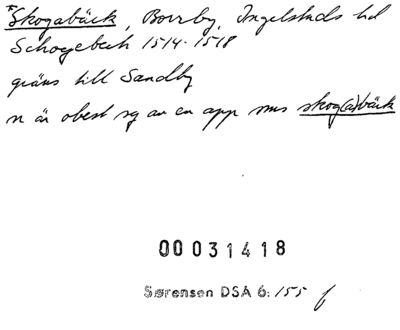 *Skogabäck, Borrby, Ingelstads hd
Schogebeck 1514-1518
gräns till Sandby
n är obest sg av en app sms skog(a)bäck
00031418
Sørensen DSA 6: 155